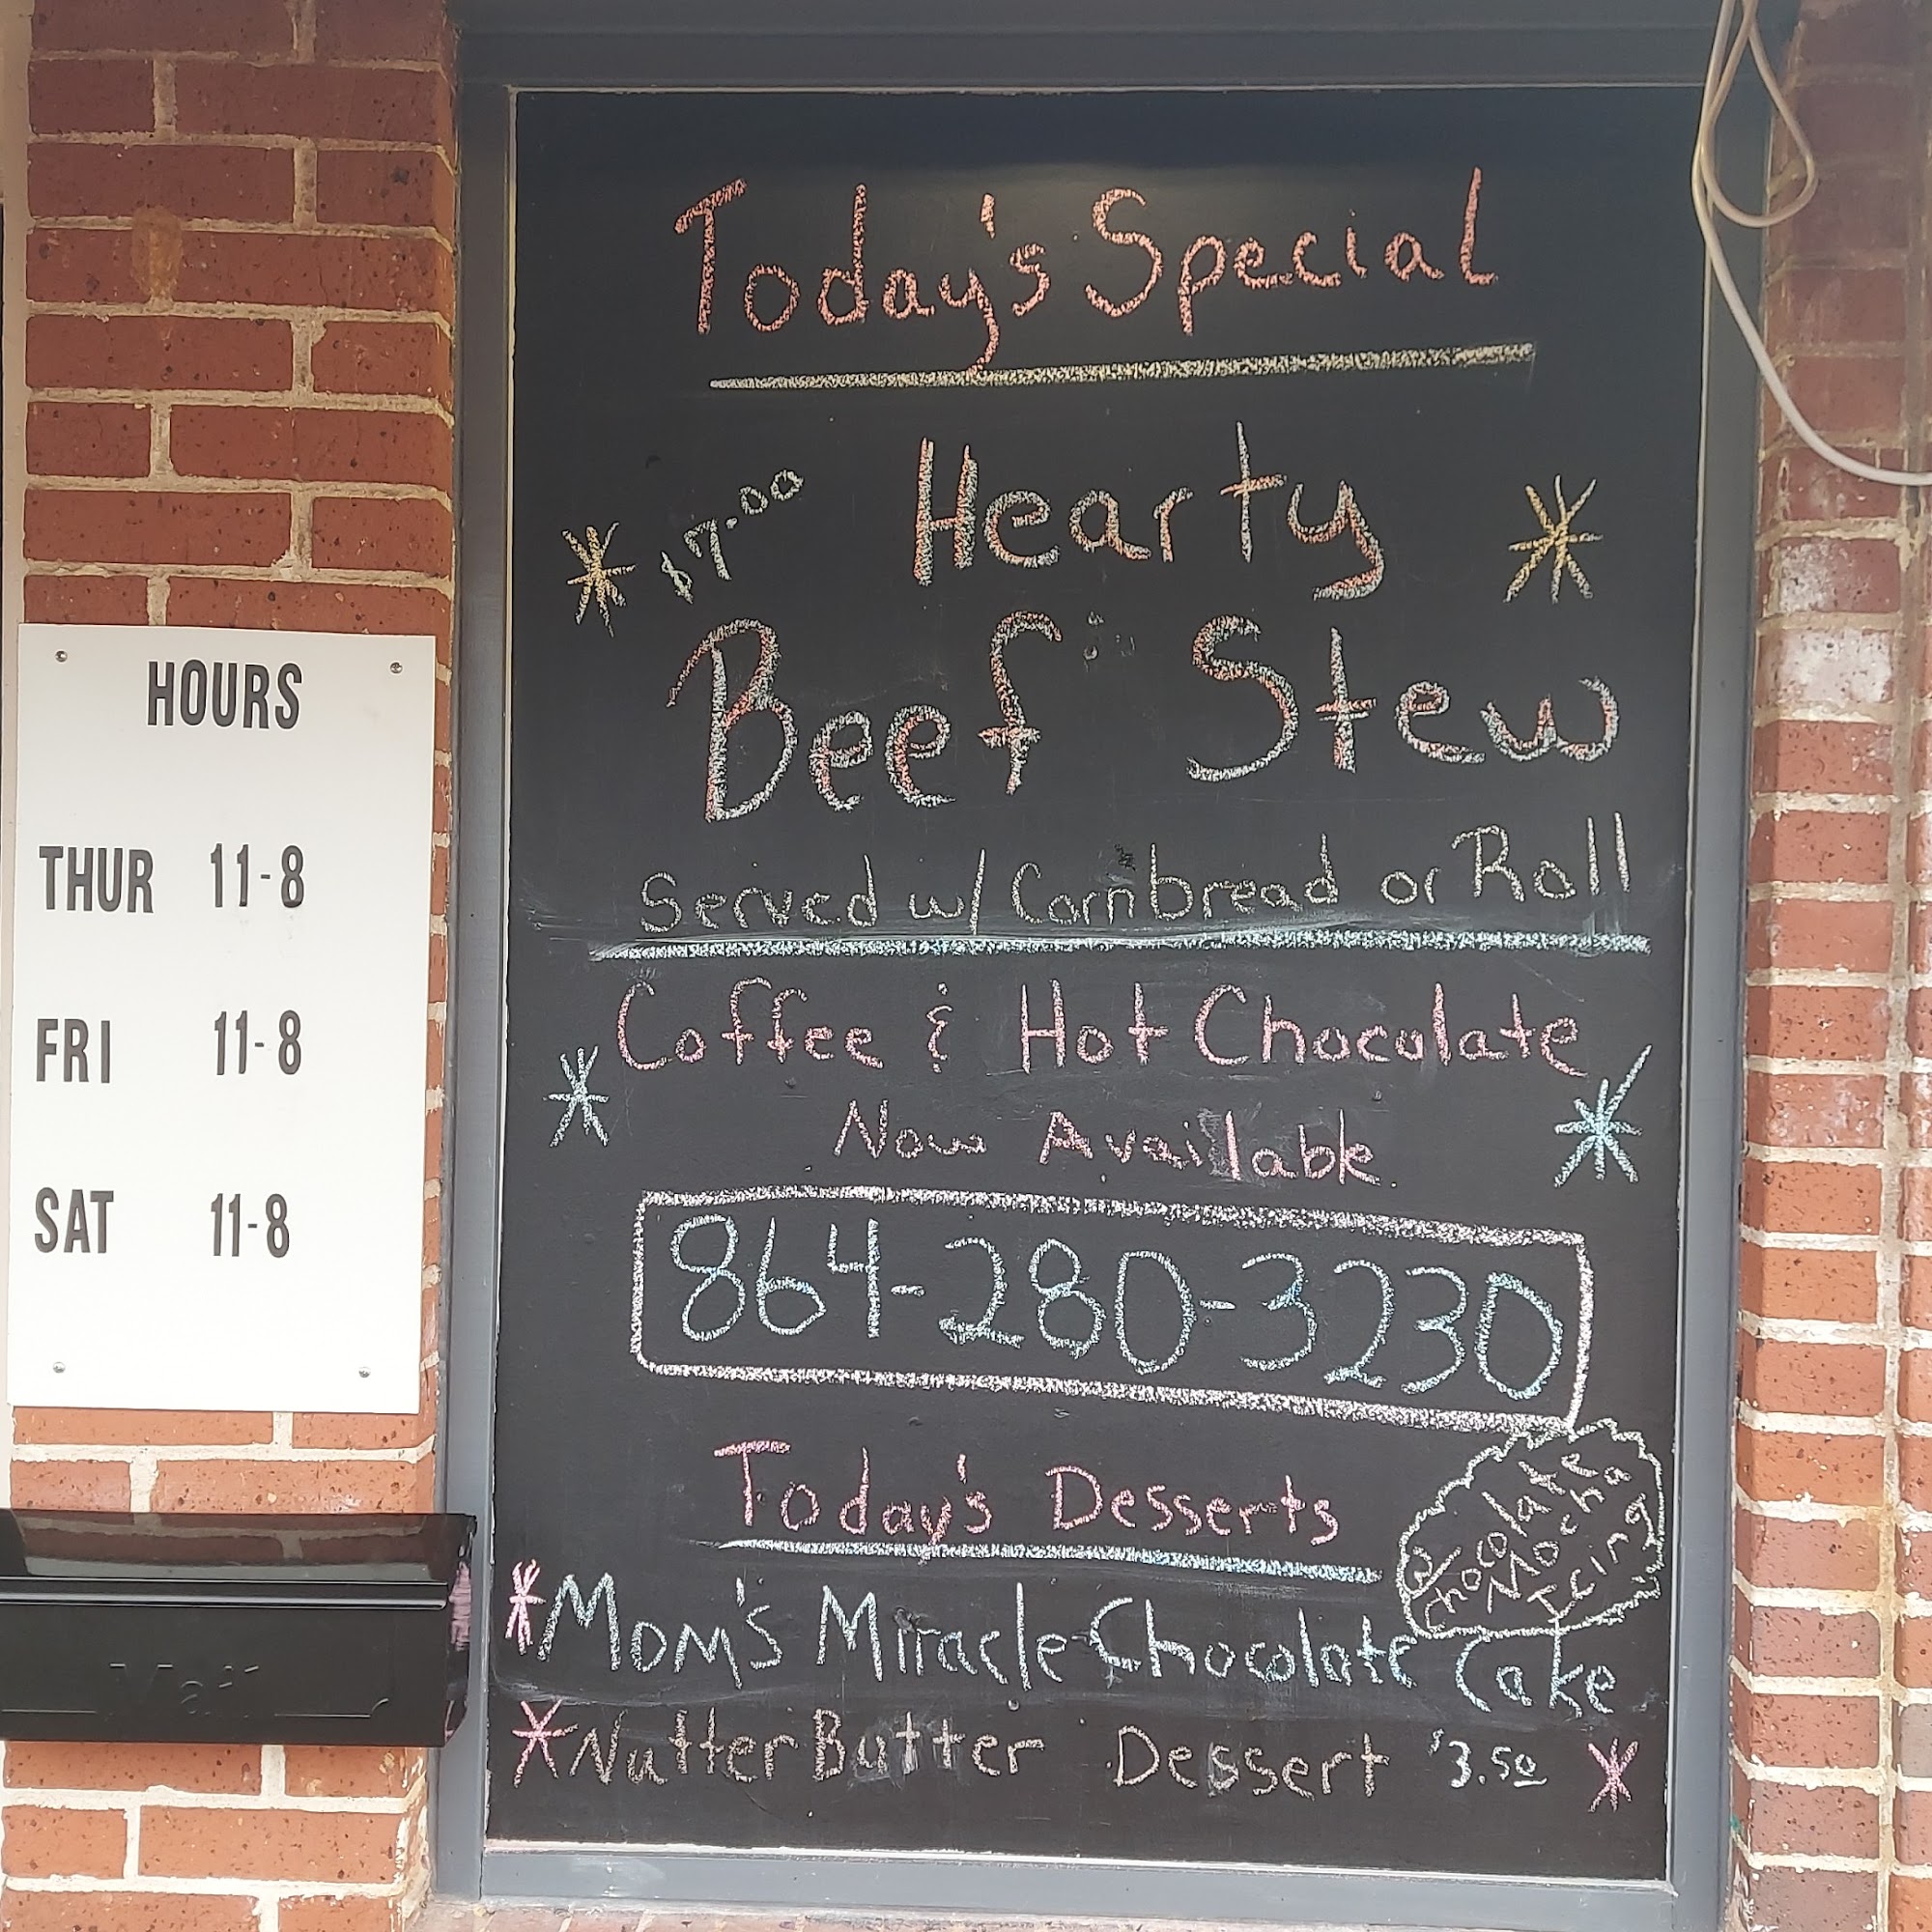 Today's Special
$7.00 Hearty
Beef Stew
Served w/ Cornbread or Roll
Coffee & Hot Chocolate
Now Available
864-280-3230
Today's Desserts
w/ Chocolate
Mocha
Icing
Mom's Miracle Chocolate Cake
Nutter Butter Dessert $3.50
HOURS
THUR 11-8
FRI 11-8
SAT 11-8
Mail